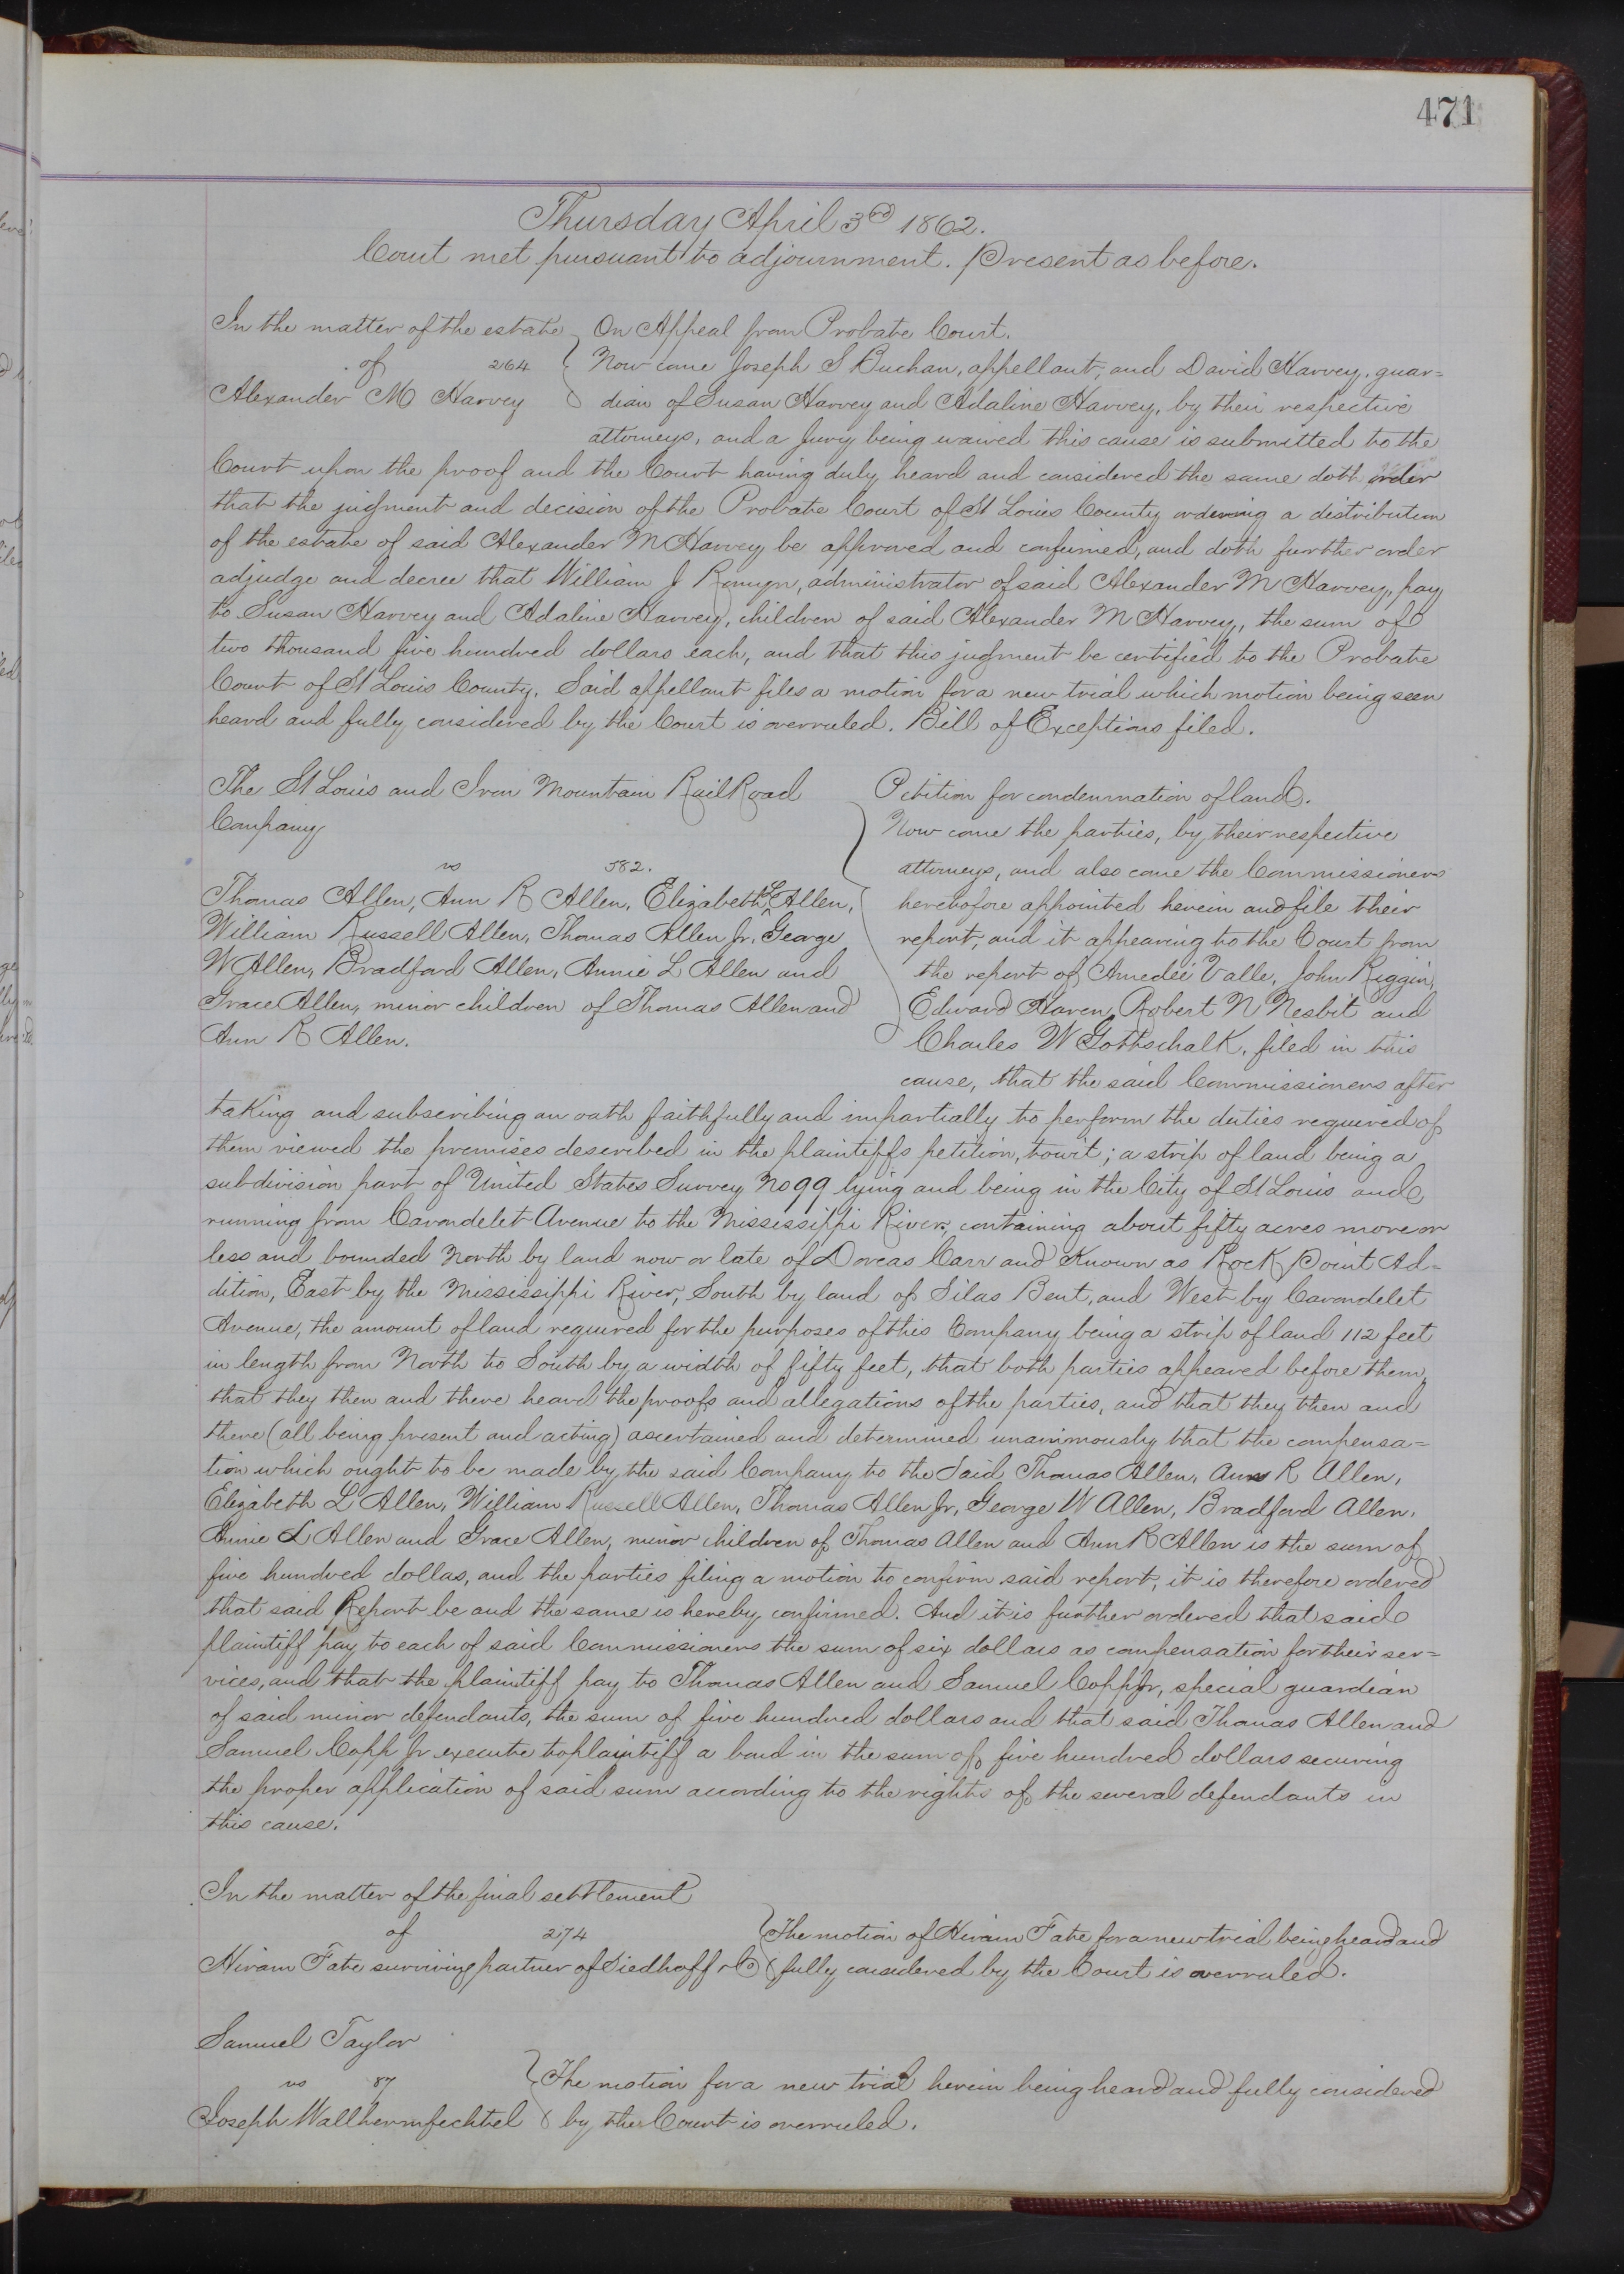 471
Thursday April 3rd 1862.
Court met pursuant to adjournment. Present as before.
In the matter of the estate
of 264
Alexander M Harvey
On Appeal from Probate Court.
Now come Joseph S Buchan, appellant, and David Harvey, guar=
dian of Susan Harvey and Adaline Harvey, by their respective
attorneys, and a Jury being waived this cause is submitted to the
Court upon the proof and the Court having duly heard and considered the same doth order
that the judgment and decision of the Probate Court of St Louis County ordering a distribution
of the estate of said Alexander M Harvey be approved and confirmed, and doth further order
adjudge and decree that William J Romyn, administrator of said Alexander M Harvey, pay
to Susan Harvey and Adaline Harvey, children of said Alexander M Harvey, the sum of
two thousand five hundred dollars each, and that this judgment be certified to the Probate
Court of St Louis County. Said appellant files a motion for a new trial which motion being seen
heard and fully considered by the Court is overruled. Bill of Exceptions filed.
The St Louis and Iron Mountain Rail Road
Company
vs 582.
Thomas Allen, Ann R Allen, Elizabeth L Allen,
William Russell Allen, Thomas Allen Jr, George
W Allen, Bradford Allen, Annie L Allen and
Grace Allen, minor children of Thomas Allen and
Ann R Allen.
Petition for condemnation of land.
Now come the parties, by their respective
attorneys, and also come the Commissioners
heretofore appointed herein and file their
report, and it appearing to the Court from
the report of Amedée Valle, John Riggin,
Edward Haren, Robert N Nesbit and
Charles W Gottschalk, filed in this
cause, that the said Commissioners after
taking and subscribing an oath faithfully and impartially to perform the duties required of
them viewed the premises described in the plaintiffs petition, towit; a strip of land being a
subdivision part of United States Survey No 99 lying and being in the City of St Louis and
running from Carondelet Avenue to the Mississippi River, containing about fifty acres more or
less and bounded North by land now or late of Dorcas Carr and Known as Rock Point Ad=
dition, East by the Mississippi River, South by land of Silas Bent, and West by Carondelet
Avenue, the amount of land required for the purposes of this Company being a strip of land 112 feet
in length from North to South by a width of fifty feet, that both parties appeared before them,
that they then and there heard the proofs and allegations of the parties, and that they then and
there (all being present and acting) ascertained and determined unanimously that the compensa=
tion which ought to be made by the said Company to the said Thomas Allen, Ann R Allen,
Elizabeth L Allen, William Russell Allen, Thomas Allen Jr, George W Allen, Bradford Allen,
Annie L Allen and Grace Allen, minor children of Thomas Allen and Ann R Allen is the sum of
five hundred dollas, and the parties filing a motion to confirm said report, it is therefore ordered
that said Report be and the same is hereby confirmed. And it is further ordered that said
plaintiff pay to each of said Commissioners the sum of six dollars as compensation for their ser=
vices, and that the plaintiff pay to Thomas Allen and Samuel Copp Jr, special guardian
of said minor defendants, the sum of five hundred dollars and that said Thomas Allen and
Samuel Copp Jr execute to plaintiff a bond in the sum of five hundred dollars securing
the proper application of said sum according to the rights of the several defendants in
this cause.
In the matter of the final settlement
of 274
Hiram Tate surviving partner of Siedhoff & Co
The motion of Hiram Tate for a new trial being heard and
fully considered by the Court is overruled.
Samuel Taylor
vs 87
Joseph Wallhermfechtel
The motion for a new trial herein being heard and fully considered
by the Court is overruled.